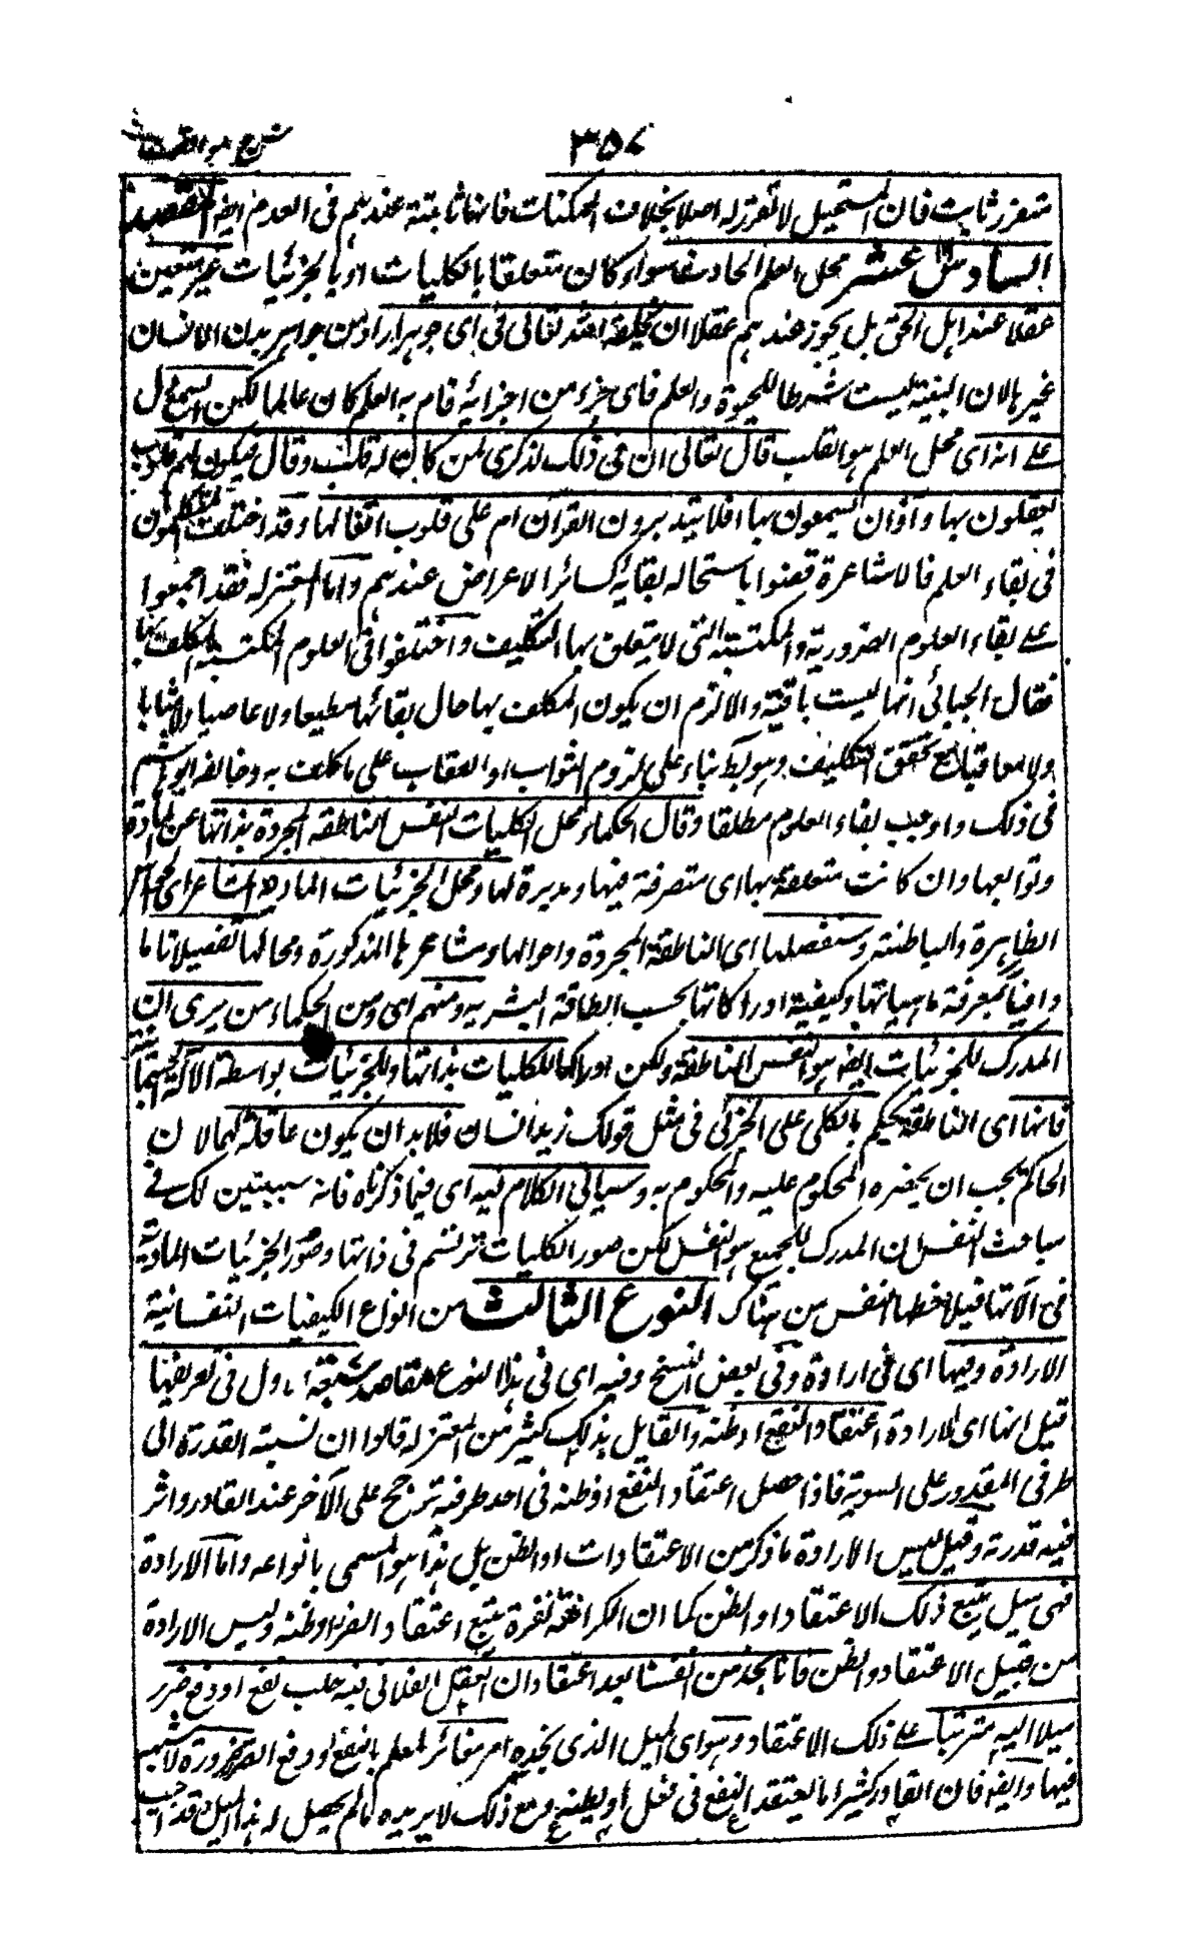 ٣٥٧
شرح مواقف
متقرر ثابت فان المستحيل لا تقرر له اصلا بخلاف الممكنات فانها ثابتة عندهم فى العدم ايضا المقصد
السادس عشر محل العلم الحادث سواء كان متعلقا بالكليات او بالجزئيات غير متعين
عقلا عند اهل الحق بل يجوز عندهم عقلا ان يخلقه الله تعالى فى اى جوهر اراد من جواهر بدن الانسان
غيرها لان البنية ليست شرطا للحيوة والعلم فاى جزء من اجزائه قام به العلم كان عالما لكن السمع دل
على انه اى محل العلم هو القلب قال تعالى ان فى ذلك لذكرى لمن كان له قلب وقال فيكون لهم قلوب
يعقلون بها و آذان يسمعون بها افلا يتدبرون القرآن ام على قلوب اقفالها وقد اختلف المتكلمون
فى بقاء العلم فالاشاعرة قضوا باستحالة بقائه كسائر الاعراض عندهم واما المعتزله فقد اجمعوا
على بقاء العلوم الضرورية والمكتسبة التى لا يتعلق بها التكليف واختلفوا فى العلوم المكتسبة المكلف بها
فقال الجبائى انها ليست باقية والا لزم ان يكون المكلف بها حال بقائها مطيعا ولا عاصيا ولا مثابا
ولا معاقبا مع تحقق التكليف وهو بط بناء على لزوم الثواب او العقاب على ما كلف به وخالفه ابو هاشم
فى ذلك واوجب بقاء العلوم مطلقا وقال الحكماء محل الكليات النفس الناطقه المجردة بذاتها عن المادة
وتوابعها وان كانت متعلقة بها اى متصرفة فيها ومدبرة لها ومحل الجزئيات المادية المشاعر اى الحواس
الظاهرة والباطنة وسنفصلها اى الناطقة المجردة واحوالها ومشاعرها المذكورة ومحالها تفصيلا تاما
وافيا بمعرفة ماهياتها وكيفية ادراكاتها بحسب الطاقة البشريه ومنهم اى ومن الحكماء من يرى ان
المدرك للجزئيات ايضا هو النفس الناطقة ولكن ادراكها للكليات بذاتها وللجزئيات بواسطة الآلة الجسمانية
فانها اى الناطقة تحكم بالكلى على الجزئى فى مثل قولك زيد انسان فلا بد ان يكون عاقلة لهما لان
الحاكم يجب ان يحضره المحكوم عليه والمحكوم به وسيأتى الكلام فيه اى فيما ذكرناه فانه سيبين لك فى
مباحث النفس ان المدرك للجميع هو النفس لكن صور الكليات ترتسم فى ذاتها وصور الجزئيات المادية
فى آلاتها فيلاحظها النفس من هناك النوع الثالث من انواع الكيفيات النفسانية
الارادة وفيها اى فى ارادة وفى بعض النسخ وفيه اى فى هذا النوع مقاصد سبعة الاول فى تعريفها
قيل انها اى الارادة اعتقاد النفع او ظنه والقايل بذلك كثير من المعتزله قالوا ان نسبة القدرة الى
طرفى المقدور على السوية فاذا حصل اعتقاد النفع او ظنه فى احد طرفيه ترجح على الآخر عند القادر واثر
فيه قدرته وقيل ليس الارادة ما ذكر من الاعتقادات او الظن بل هذا هو المسمى بالنواعه واما الارادة
فهى ميل يتبع ذلك الاعتقاد او الظن كما ان الكراهة نفرة تتبع اعتقاد الضرر او ظنه وليس الارادة
من قبيل الاعتقاد والظن فانا نجد من انفسنا بعد اعتقاد ان الفعل الفلانى فيه جلب نفع او دفع ضرر
ميلا اليه مترتبا على ذلك الاعتقاد وهو اى الميل الذى نجده امر مغائر للعلم بالنفع او دفع الضرر ضرورة لا شبهة
فيها وايضا فان القادر كثيرا ما يعتقد النفع فى فعل او يظنه ومع ذلك لا يريده ما لم يحصل له هذا الميل وقد اجيب